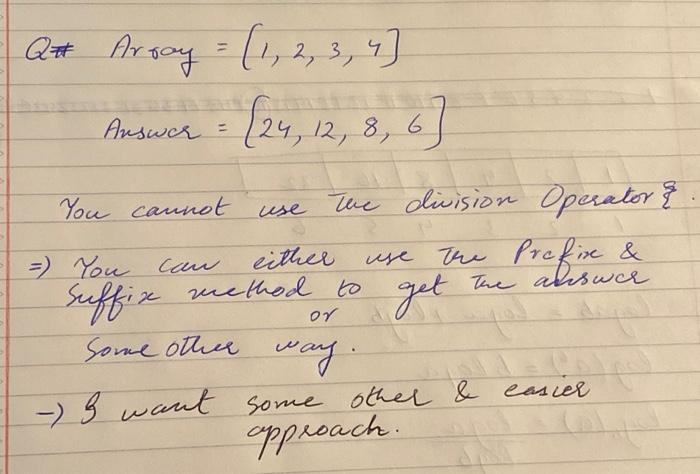 Q# Array = [1, 2, 3, 4]
Answer = [24, 12, 8, 6]
You cannot use the division Operator.
=) You can either use the Prefix &
Suffix method to get the answer
or
Some other way.
-> I want some other & easier
approach.